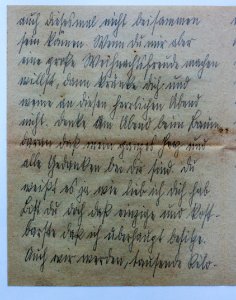 auch diesesmal nicht beisammen
sein können. Wenn du mir aber
eine große Weihnachtsfreude machen
willst, dann kränke dich und
weine an diesen herrlichen Abend
nicht. denke am Abend beim
daran daß mein ganzes Herz und
alle Gedanken bei dir sind. du
weißt es ja wie lieb ich dich hab
bist du doch das einzige und kost-
barste das ich überhaupt besitze.
Auch wir werden, tausende